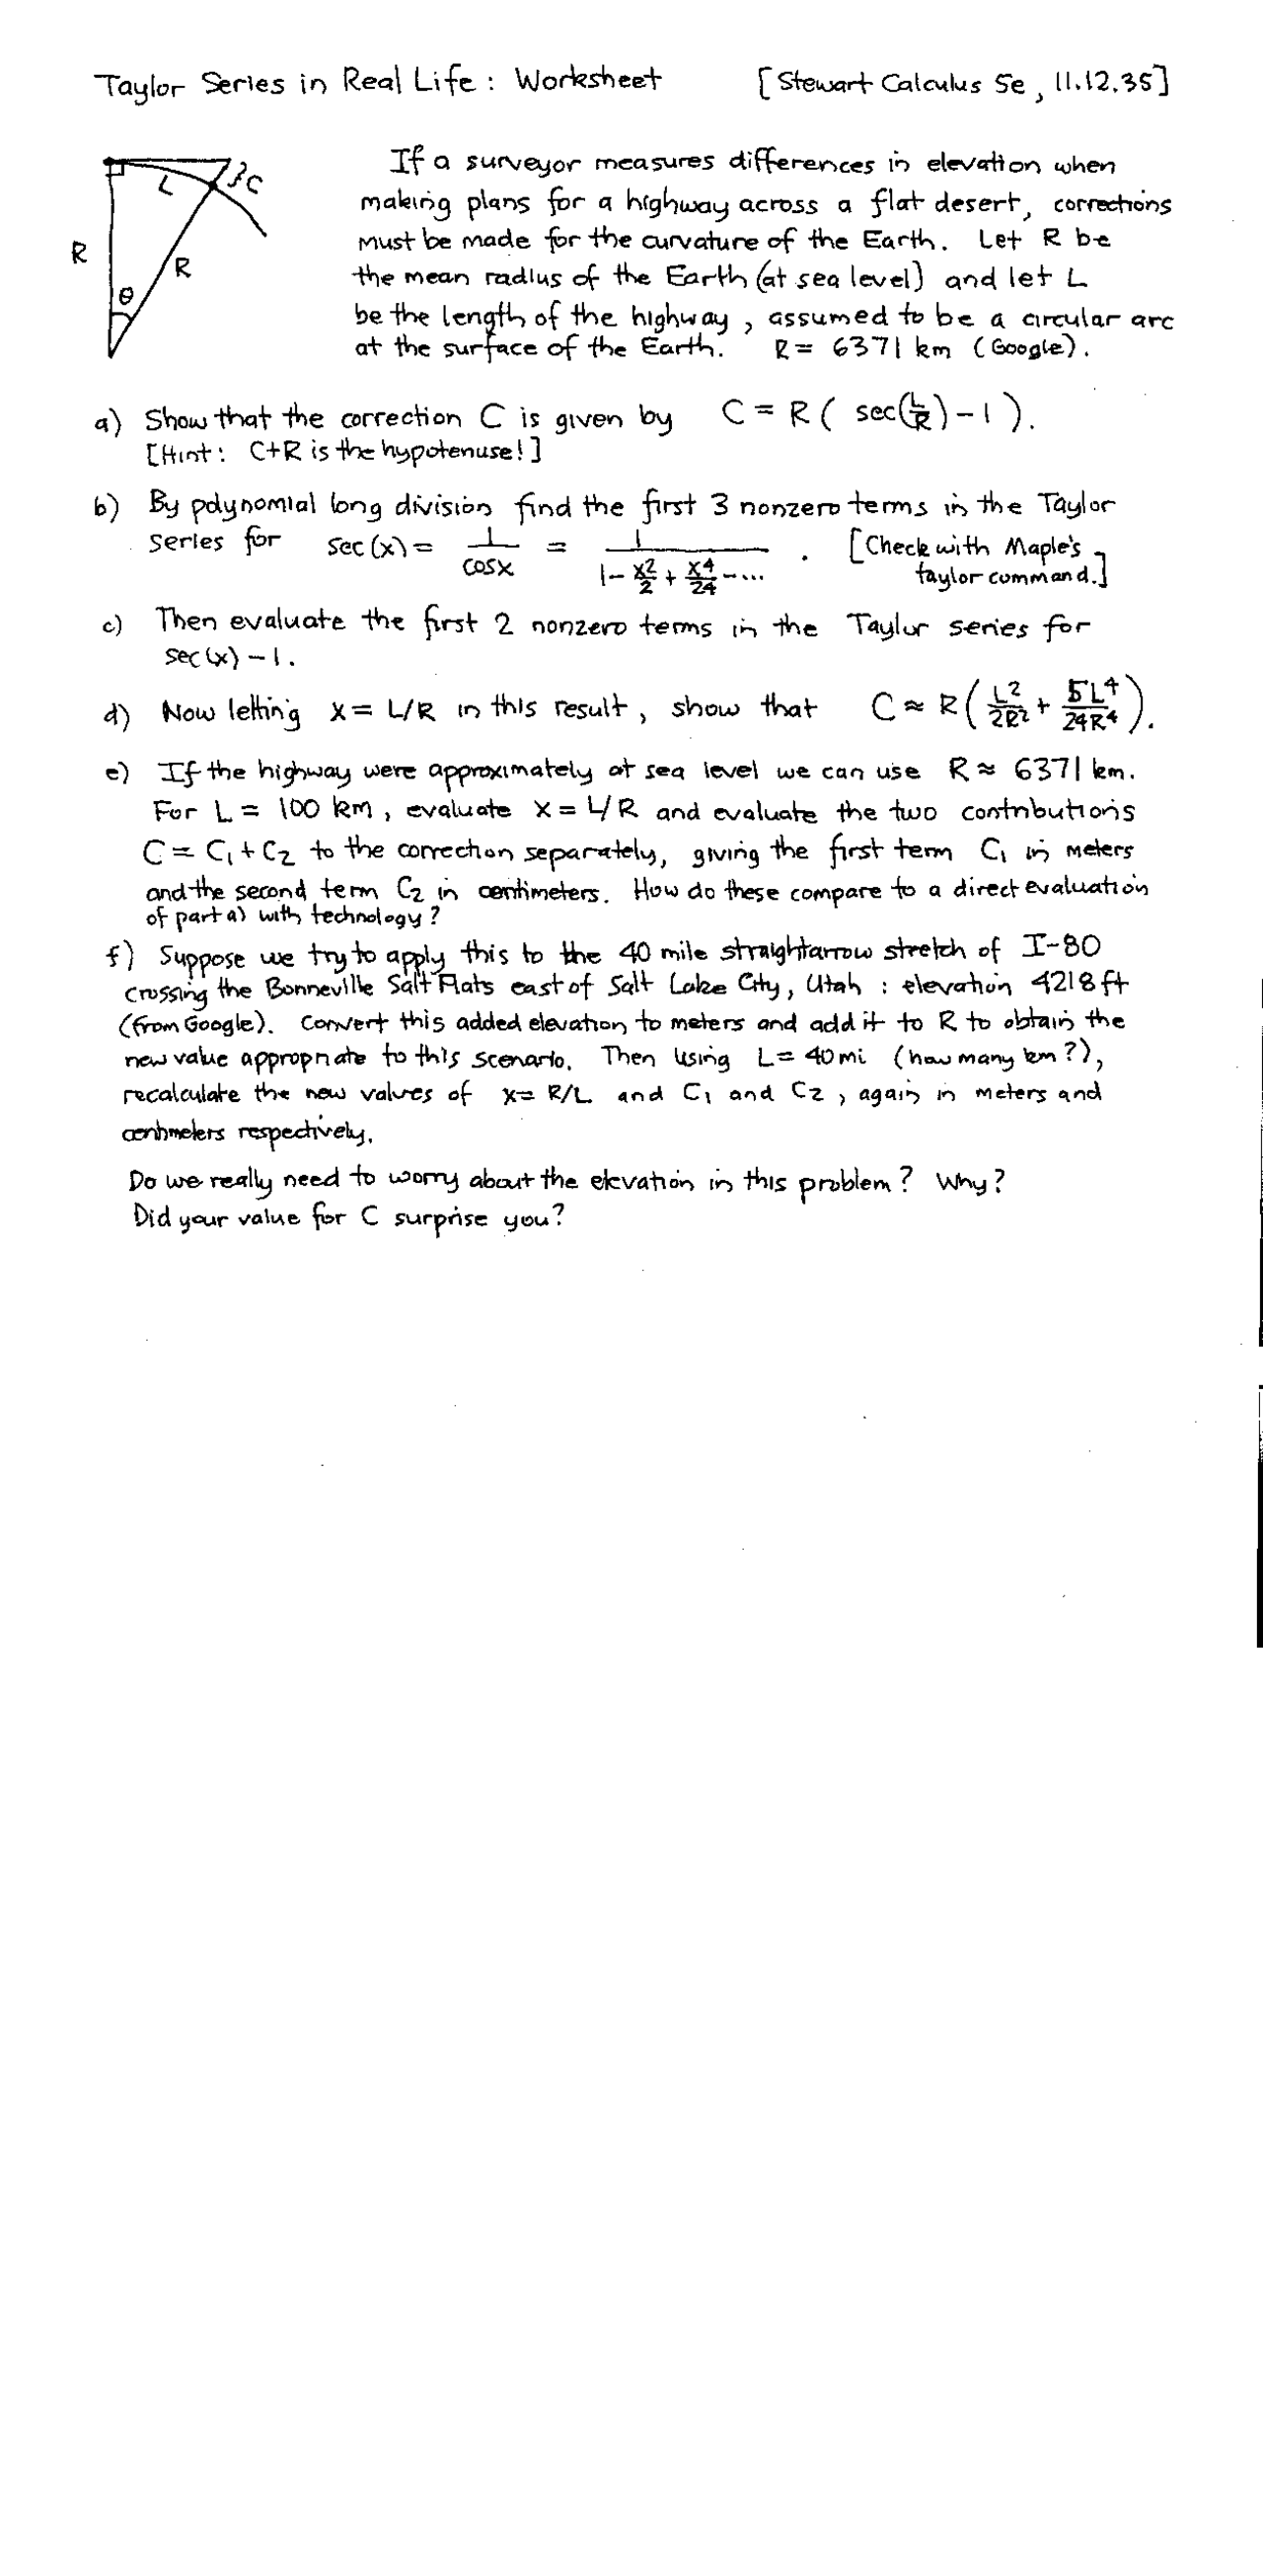 Taylor Series in Real Life: Worksheet [Stewart Calculus 5e, 11.12.35]
L }C
R R
θ
If a surveyor measures differences in elevation when
making plans for a highway across a flat desert, corrections
must be made for the curvature of the Earth. Let R be
the mean radius of the Earth (at sea level) and let L
be the length of the highway, assumed to be a circular arc
at the surface of the Earth. R = 6371 km (Google).
a) Show that the correction C is given by C = R ( sec(L/R) - 1 ).
[Hint: C+R is the hypotenuse!]
b) By polynomial long division find the first 3 nonzero terms in the Taylor
series for sec(x) = 1/cosx = 1/(1 - x²/2 + x⁴/24 - ...) . [Check with Maple's
taylor command.]
c) Then evaluate the first 2 nonzero terms in the Taylor series for
sec(x) - 1.
d) Now letting x = L/R in this result, show that C ≈ R ( L²/2R² + 5L⁴/24R⁴ ).
e) If the highway were approximately at sea level we can use R ≈ 6371 km.
For L = 100 km, evaluate x = L/R and evaluate the two contributions
C = C₁ + C₂ to the correction separately, giving the first term C₁ in meters
and the second term C₂ in centimeters. How do these compare to a direct evaluation
of part a) with technology?
f) Suppose we try to apply this to the 40 mile straightarrow stretch of I-80
crossing the Bonneville Salt Flats east of Salt Lake City, Utah : elevation 4218 ft
(from Google). Convert this added elevation to meters and add it to R to obtain the
new value appropriate to this scenario. Then using L = 40 mi (how many km?),
recalculate the new values of x = R/L and C₁ and C₂, again in meters and
centimeters respectively.
Do we really need to worry about the elevation in this problem? Why?
Did your value for C surprise you?